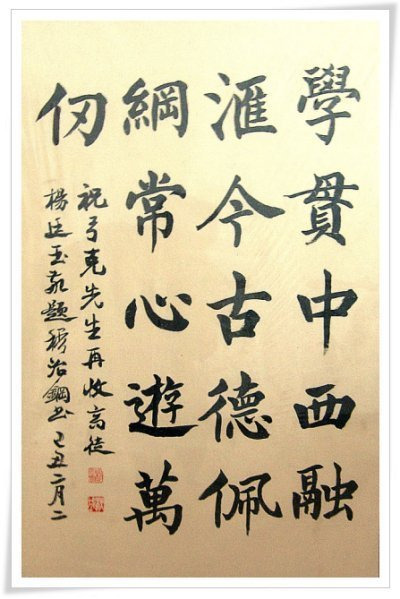 學貫中西融
滙今古德佩
綱常心遊萬
仞
祝弓克先生再收高徒
楊廷玉敬題穆治鋼书己丑二月二